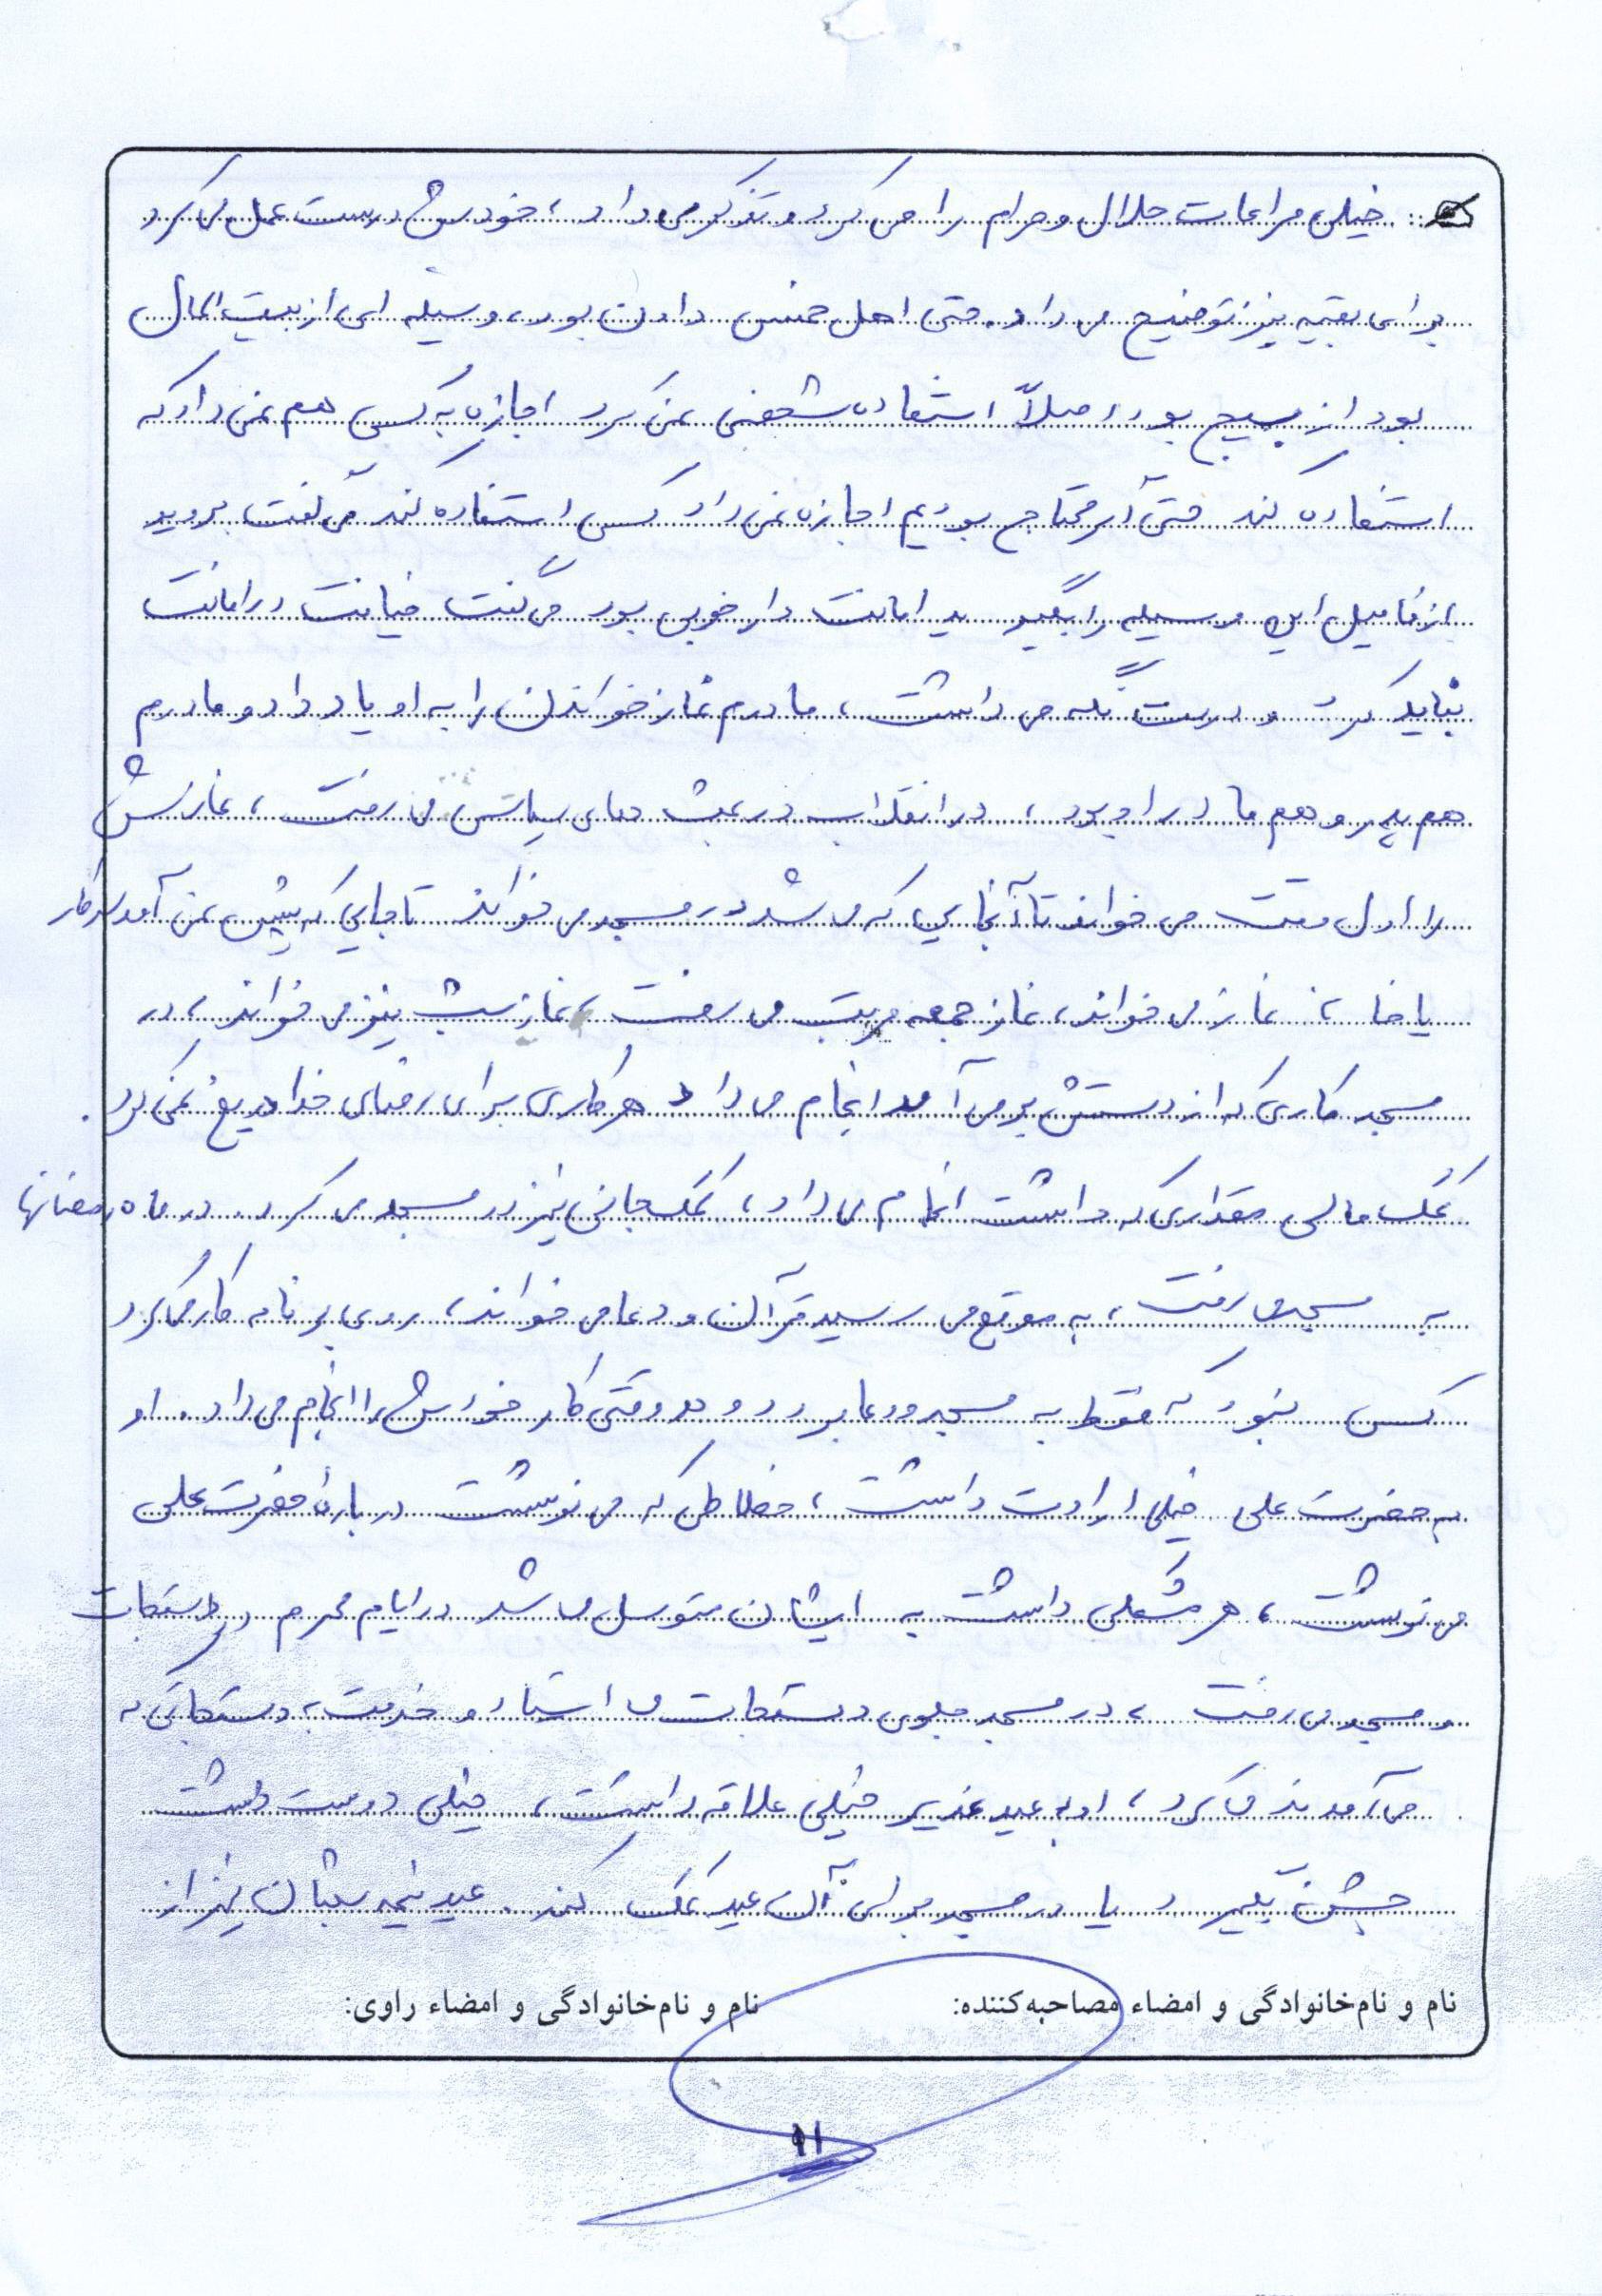 خیلی مراعات حلال و حرام را می کرد و تذکر می داد، خودش درست عمل می کرد
برای بقیه نیز توضیح می داد. حتی اهل خمس دادن بود، وسیله ای از بیت المال
بود از بسیج بود اصلاً استفاده شخصی نمی کرد اجازه به کسی هم نمی داد که
استفاده کند حتی اگر محتاج بودیم اجازه نمی داد کسی استفاده کند می گفت بروید
از فامیل این وسیله را بگیرید امانت دار خوبی بود می گفت خیانت در امانت
نباید کرد و درست نگه می داشت، مادرم نماز خواندن را به او یاد داد و مادرم
هم پدر و هم مادر او بود، در انقلاب در بحث های سیاسی می رفت، نمازش
را اول وقت می خواند تا آنجایی که می شد در مسجد می خواند تا جایی که پیش نمی آمد سرکار
یا خانه نماز می خواند، نماز جمعه مرتب می رفت، نماز شب نیز می خواند، در
مسجد کاری که از دستش بر می آمد انجام می داد هر کاری برای رضای خدا دریغ نمی کرد.
کمک مالی مقداری که داشت انجام می داد، کمک جانی نیز در مسجد می کرد. در ماه رمضانها
به مسجد می رفت، به موقع می رسید قرآن و دعا می خواند، روی برنامه کار می کرد
کسی نبود که فقط به مسجد و دعا برود و هر وقتی کار خودش را انجام می داد. او
به حضرت علی خیلی ارادت داشت، خطاطی که می نوشت درباره حضرت علی
می نوشت، هر مشکلی داشت به ایشان متوسل می شد در ایام محرم در دستجات
و مسجد می رفت، در مسجد جلوی دستجات می استاد و خدمت به دستجاتی که
می آمدند می کرد، او به عید غدیر خیلی علاقه داشت، خیلی دوست داشت
جشن بگیرد و یا در مسجد برای آن عید کمک کند. عید نیمه شعبان نیز از
نام و نام‌خانوادگی و امضاء مصاحبه‌کننده: نام و نام‌خانوادگی و امضاء راوی:
۱۱